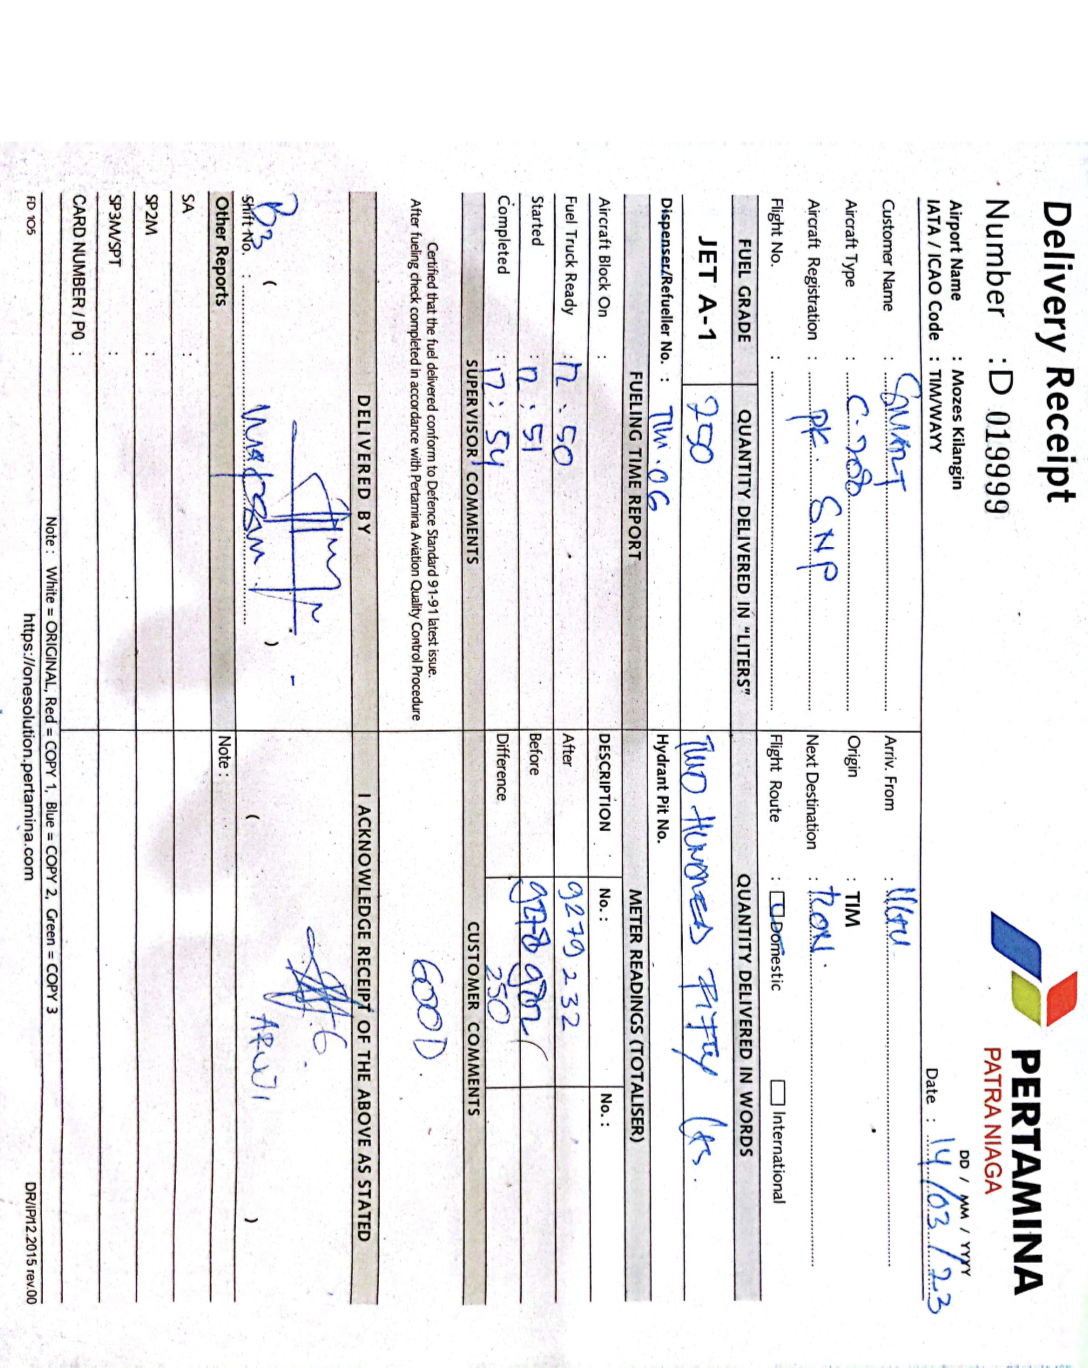 Delivery Receipt
Number : D 019999
PERTAMINA
PATRA NIAGA
DD / MM / YYYY
Airport Name : Mozes Kilangin
IATA / ICAO Code : TIM/WAYY
Date : 14/03/23
Customer Name : SMART
Arriv. From :
Aircraft Type : C-208
Origin : TIM
Aircraft Registration : PK. SNP
Next Destination :
Flight No. :
Flight Route : Domestic International
FUEL GRADE QUANTITY DELIVERED IN "LITERS" QUANTITY DELIVERED IN WORDS
JET A-1 250 TWO HUNDRED FIFTY LTS.
Dispenser/Refueller No. : TIM.06 Hydrant Pit No.
FUELING TIME REPORT METER READINGS (TOTALISER)
Aircraft Block On : DESCRIPTION No. : No. :
Fuel Truck Ready : 12:50 After 9279232
Started : 12:51 Before
Completed : 12:54 Difference 250
SUPERVISOR' COMMENTS CUSTOMER COMMENTS
Certified that the fuel delivered conform to Defence Standard 91-91 latest issue.
After fueling check completed in accordance with Pertamina Aviation Quality Control Procedure
GOOD.
DELIVERED BY I ACKNOWLEDGE RECEIPT OF THE ABOVE AS STATED
B3 ( ) ( )
Shift No. :
Other Reports Note :
SA :
SP2M :
SP3M/SPT :
CARD NUMBER / PO :
Note : White = ORIGINAL, Red = COPY 1, Blue = COPY 2, Green = COPY 3
FD 105 https://onesolution.pertamina.com DR/IP/12.2015 rev.00